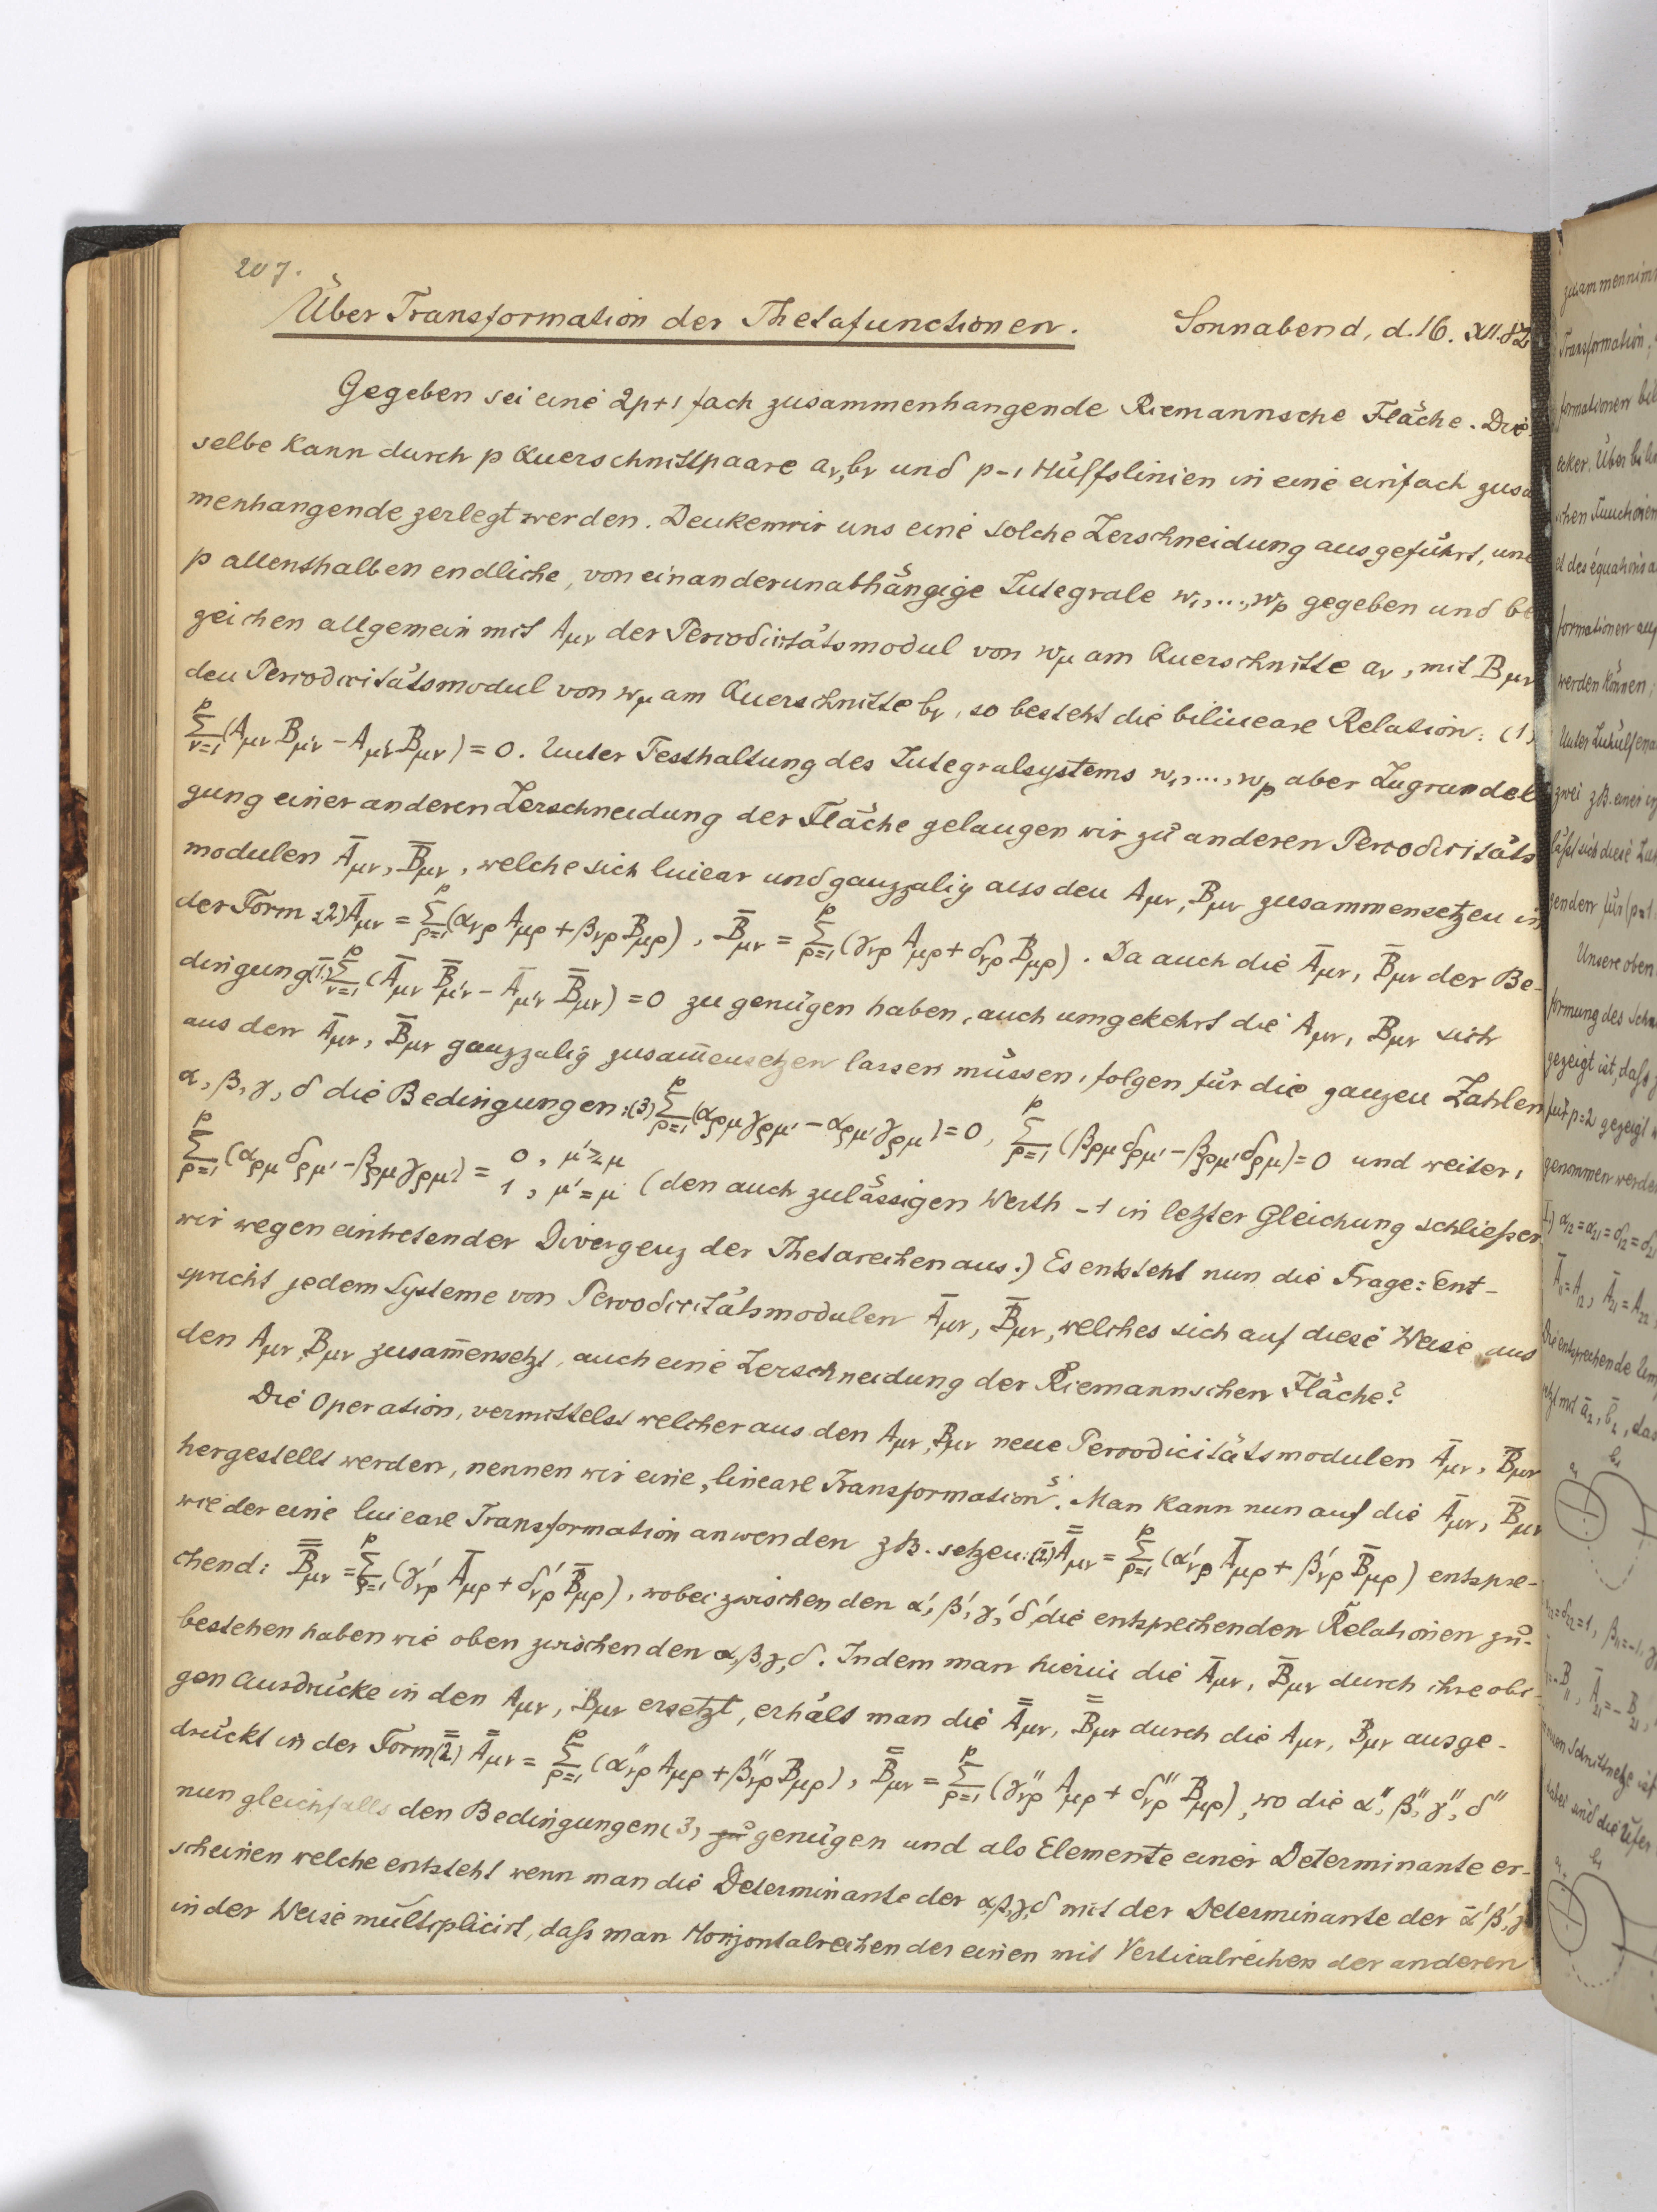 207.
Über Transformation der Thetafunctionen. Sonnabend, d. 16. XII. 82
Gegeben sei eine 2p+1 fach zusammenhangende Riemannsche Fläche. Die
selbe kann durch p Querschnittpaare aν, bν und p-1 Hülfslinien in eine einfach zusa
menhangende zerlegt werden. Denken wir uns eine solche Zerschneidung ausgeführt, und
p allenthalben endliche, von einander unabhängige Integrale w₁, ..., wp gegeben und be
zeichen allgemein mit Aμν der Periodicitätsmodul von wμ am Querschnitte aν, mit Bμν
den Periodicitätsmodul von wμ am Querschnitte bν, so besteht die bilineare Relation: (1)
∑_{ν=1}^{p} (Aμν Bμ'ν - Aμ'ν Bμν) = 0. Unter Festhaltung des Integralsystems w₁, ..., wp aber Zugrundele
gung einer anderen Zerschneidung der Fläche gelangen wir zu anderen Periodicitäts
modulen A̅μν, B̅μν, welche sich linear und ganzzalig aus den Aμν, Bμν zusammensetzen in
der Form: (2) A̅μν = ∑_{ρ=1}^{p} (ανρ Aμρ + βνρ Bμρ), B̅μν = ∑_{ρ=1}^{p} (γνρ Aμρ + δνρ Bμρ). Da auch die A̅μν, B̅μν der Be-
dingung (1̅) ∑_{ν=1}^{p} (A̅μν B̅μ'ν - A̅μ'ν B̅μν) = 0 zu genügen haben, auch umgekehrt die Aμν, Bμν sich
aus den A̅μν, B̅μν ganzzalig zusam̅ensetzen lassen müssen, folgen für die ganzen Zahlen
α, β, γ, δ die Bedingungen: (3) ∑_{ρ=1}^{p} (αρμ γρμ' - αρμ' γρμ) = 0, ∑_{ρ=1}^{p} (βρμ δρμ' - βρμ' δρμ) = 0 und weiter,
∑_{ρ=1}^{p} (αρμ δρμ' - βρμ γρμ') = 0, μ' ≷ μ 1, μ' = μ (den auch zulässigen Werth -1 in letzter Gleichung schließen
wir wegen eintretender Divergenz der Thetareihen aus.) Es entsteht nun die Frage: Ent-
spricht jedem Systeme von Periodicitätsmodulen A̅μν, B̅μν, welches sich auf diese Weise aus
den Aμν, Bμν zusam̅ensetzt, auch eine Zerschneidung der Riemannschen Fläche?
Die Operation, vermittelst welcher aus den Aμν, Bμν neue Periodicitätsmodulen A̅μν, B̅μν
hergestellt werden, nennen wir eine „lineare Transformation“. Man kann nun auf die A̅μν, B̅μν
wieder eine lineare Transformation anwenden z.B. setzen: (2̅) A̿μν = ∑_{ρ=1}^{p} (α'νρ A̅μρ + β'νρ B̅μρ) entspre-
chend: B̿μν = ∑_{ρ=1}^{p} (γ'νρ A̅μρ + δ'νρ B̅μρ), wobei zwischen den α', β', γ', δ' die entsprechenden Relationen zu
bestehen haben wie oben zwischen den α, β, γ, δ. Indem man hierin die A̅μν, B̅μν durch ihre obi-
gen Ausdrücke in den Aμν, Bμν ersetzt, erhält man die A̿μν, B̿μν durch die Aμν, Bμν ausge-
drückt in der Form (2̿) A̿μν = ∑_{ρ=1}^{p} (α''νρ Aμρ + β''νρ Bμρ), B̿μν = ∑_{ρ=1}^{p} (γ''νρ Aμρ + δ''νρ Bμρ), wo die α'', β'', γ'', δ''
nun gleichfalls den Bedingungen (3) zu genügen und als Elemente einer Determinante er-
scheinen welche entsteht wenn man die Determinante der α, β, γ, δ mit der Determinante der α', β', γ'
in der Weise multiplicirt, daſs man Horizontalreihen der einen mit Verticalreihen der anderen
zusammennim
Transformation,
formationen bil
acker. Über bili
schen Functionen
et des équations a
formationen auf
werden können;
Unter Zuhülfena
zwei z.B. einer in
läſst sich diese Zu
genden für (p=1
Unsere oben
formung des Schn
gezeigt ist, daſs
für p=2 gezeigt
genommen werde
I.) α₁₂=α₂₁=δ₁₂=δ₂₁
A̅₁₁=A₁₂, A̅₂₁=A₂₂
Die entsprechende Um
jetzt mit a̅₂, b̅₂, das
δ₂₂=1, β₁₁=-1, γ
-B₁₁, A̅₂₁=-B₂₁
Schnittnetze ist
dabei sind die Ufer